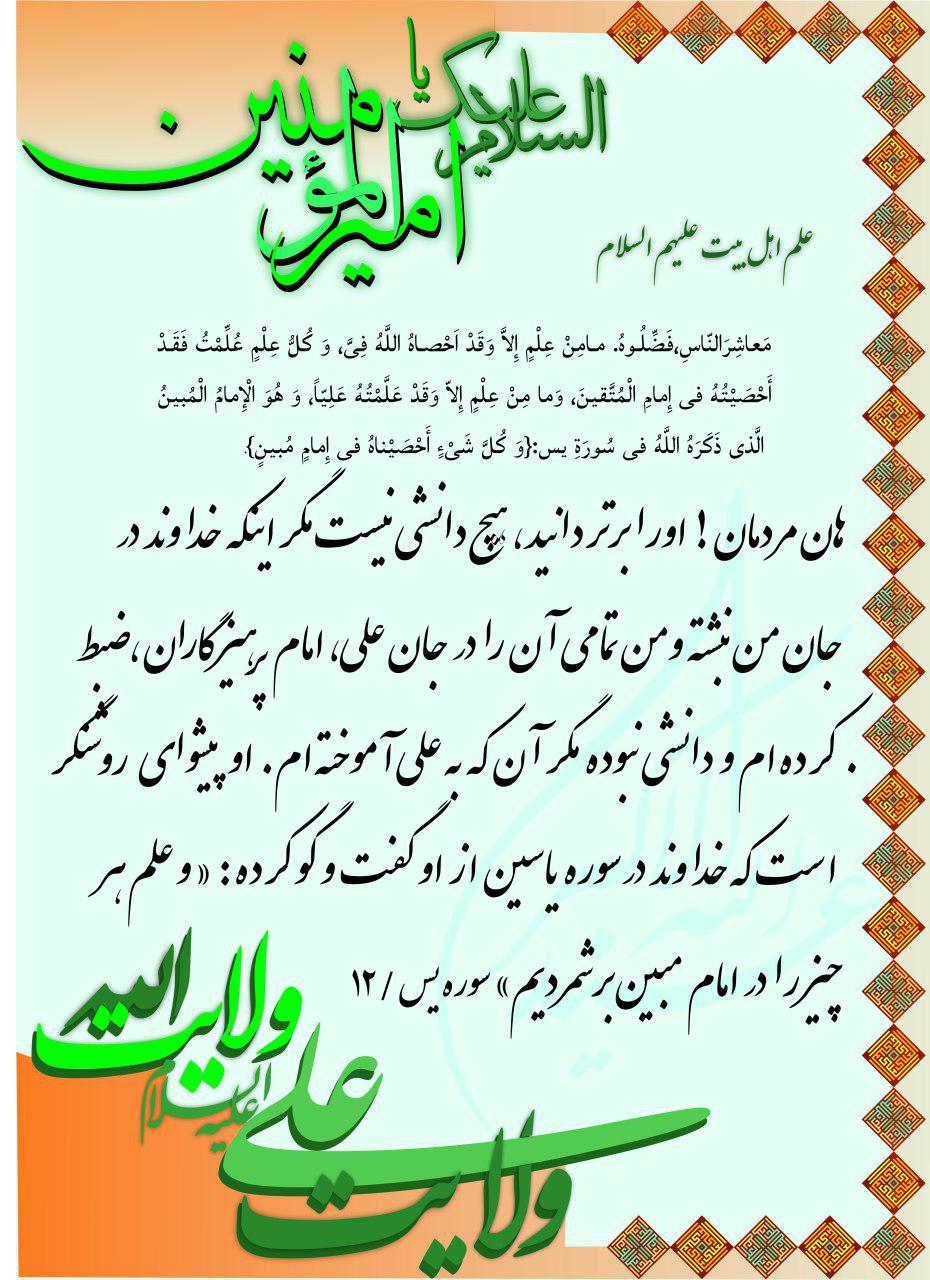 السلام علیک یا
امیرالمؤمنین
علم اهل بیت علیهم السلام
مَعاشِرَالنّاسِ،فَضِّلُوهُ. مامِنْ عِلْمٍ إِلاَّ وَقَدْ اَحْصاهُ اللَّهُ فِیَّ، وَ کُلُّ عِلْمٍ عُلِّمْتُ فَقَدْ
أَحْصَیْتُهُ فی إِمامِ الْمُتَّقینَ، وَما مِنْ عِلْمٍ إِلاّ وَقَدْ عَلَّمْتُهُ عَلِیّاً، وَ هُوَ الْإِمامُ الْمُبینُ
الَّذی ذَکَرَهُ اللَّهُ فی سُورَةِ یس:{وَ کُلَّ شَیْءٍ أَحْصَیْناهُ فی إِمامٍ مُبینٍ}.
هان مردمان! او را برتر دانید، هیچ دانشی نیست مگر اینکه خداوند در
جان من نبشته و من تمامی آن را در جان علی، امام پرهیزگاران، ضبط
کرده ام و دانشی نبوده مگر آن که به علی آموخته ام. او پیشوای روشنگر
است که خداوند در سوره یاسین از او گفت و گو کرده: «و علم هر
چیز را در امام مبین برشمردیم» سوره یس / ۱۲
ولایت الله
ولایت علی
علیه السلام